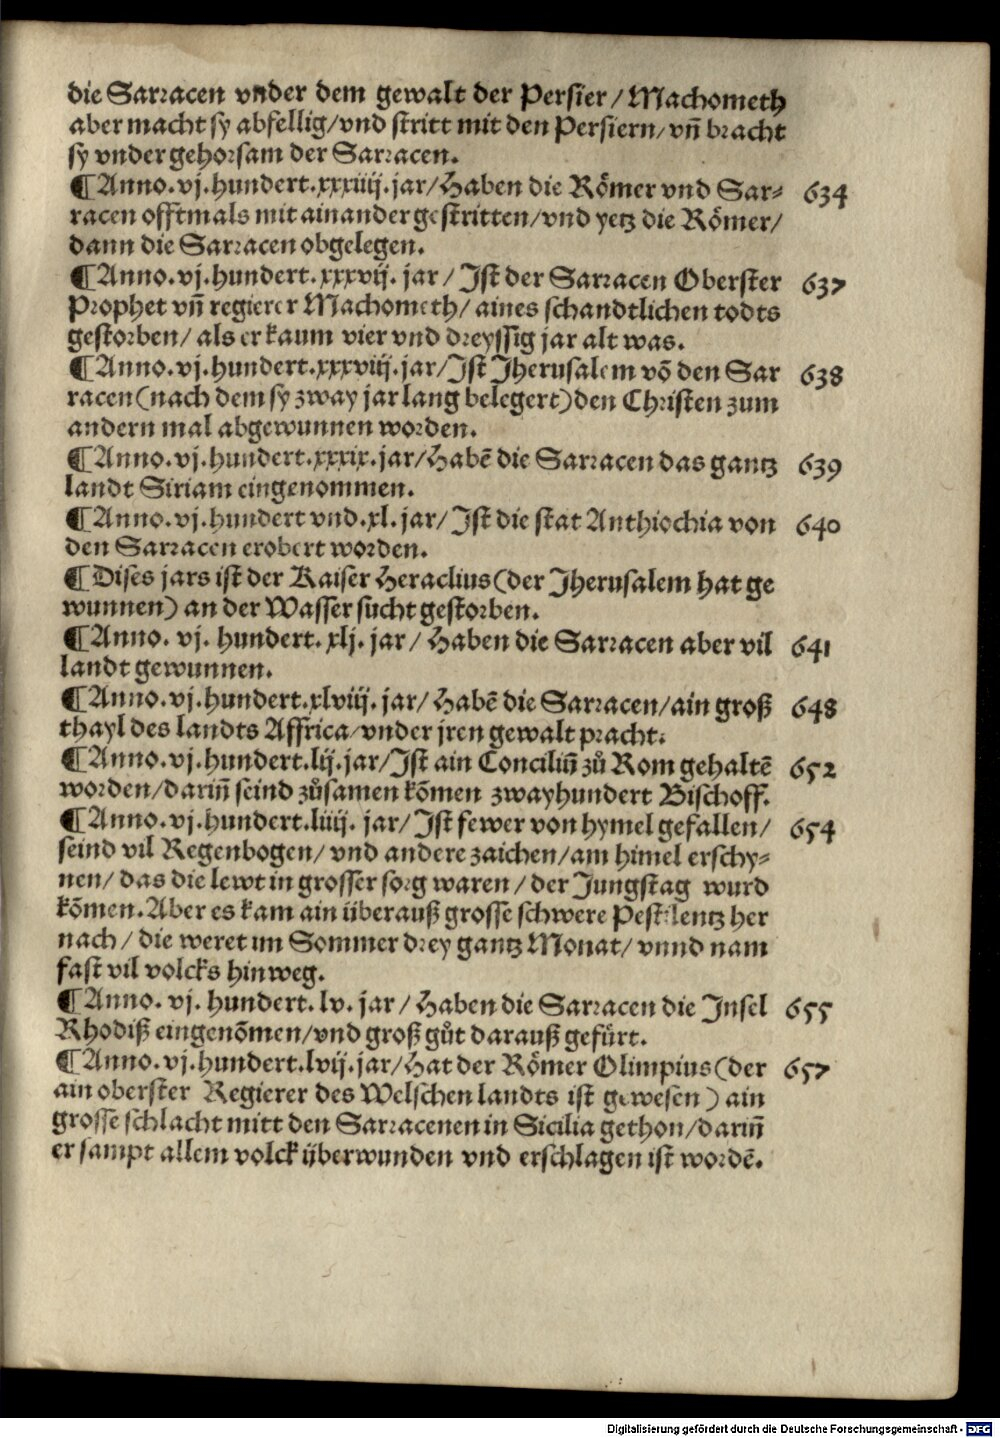 die Sarracen vnder dem gewalt der Persier / Machometh
aber macht sy abfellig/vnd stritt mit den Persiern/vñ bracht
sy vnder gehorsam der Sarracen.
¶Anno.vj.hundert.xxxiiij.jar/Haben die Römer vnd Sar- 634
racen offtmals mit ainander gestritten/vnd yetz die Römer/
dann die Sarracen obgelegen.
¶Anno.vj.hundert.xxxvij. jar / Ist der Sarracen Oberster 637
Prophet vñ regierer Machometh/ aines schandtlichen todts
gestorben/ als er kaum vier vnd dreyssig jar alt was.
¶Anno.vj.hundert.xxxviij.jar/Ist Jherusalem võ den Sar 638
racen(nach dem sy zway jar lang belegert)den Christen zum
andern mal abgewunnen worden.
¶Anno.vj.hundert.xxxix.jar/Habẽ die Sarracen das gantz 639
landt Siriam eingenommen.
¶Anno.vj.hundert vnd.xl. jar/ Ist die stat Anthiochia von 640
den Sarracen erobert worden.
¶Dises jars ist der Kaiser Heraclius(der Jherusalem hat ge
wunnen) an der Wasser sucht gestorben.
¶Anno. vj. hundert. xlj. jar / Haben die Sarracen aber vil 641
landt gewunnen.
¶Anno.vj.hundert.xlviij. jar/ Habẽ die Sarracen/ain groß 648
thayl des landts Affrica/vnder jren gewalt pracht.
¶Anno.vj.hundert.lij.jar/Ist ain Conciliũ zů Rom gehaltẽ 652
worden/dariñ seind zůsamen kõmen zwayhundert Bischoff.
¶Anno.vj.hundert.liiij. jar/ Ist fewer von hymel gefallen/ 654
seind vil Regenbogen/ vnd andere zaichen/am himel erschy-
nen/ das die lewt in grosser sorg waren / der Jungstag wurd
kõmen. Aber es kam ain überauß grosse schwere Pestilentz her
nach / die weret im Sommer drey gantz Monat/ vnnd nam
fast vil volcks hinweg.
¶Anno. vj. hundert. lv. jar / Haben die Sarracen die Insel 655
Rhodiß eingenõmen/vnd groß gůt darauß gefürt.
¶Anno.vj.hundert.lvij.jar/Hat der Römer Olimpius(der 657
ain oberster Regierer des Welschen landts ist gewesen) ain
grosse schlacht mitt den Sarracenen in Sicilia gethon/dariñ
er sampt allem volck überwunden vnd erschlagen ist wordẽ.
Digitalisierung gefördert durch die Deutsche Forschungsgemeinschaft - DFG